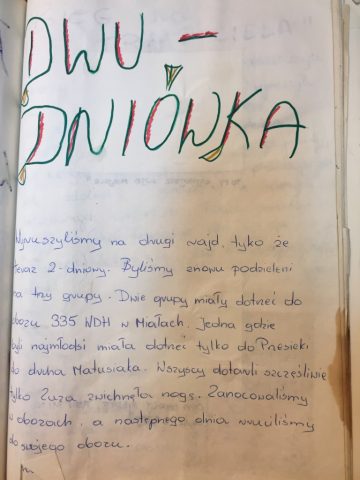 DWU -
DNIÓWKA
Wyruszyliśmy na drugi rajd, tyko że
teraz 2-dniowy. Byliśmy znowu podzieleni
na trzy grupy. Dwie grupy miały dotrzeć do
obozu 335 WDH w Miałach, jedna gdzie
byli najmłodsi miała dotrzeć tylko do Przesieki
do druha Matusiaka. Wszyscy dotarli szczęśliwie
tylko Zuza zwichnęła nogę. Zanocowaliśmy
w obozach, a następnego dnia wruciliśmy
do swojego obozu.